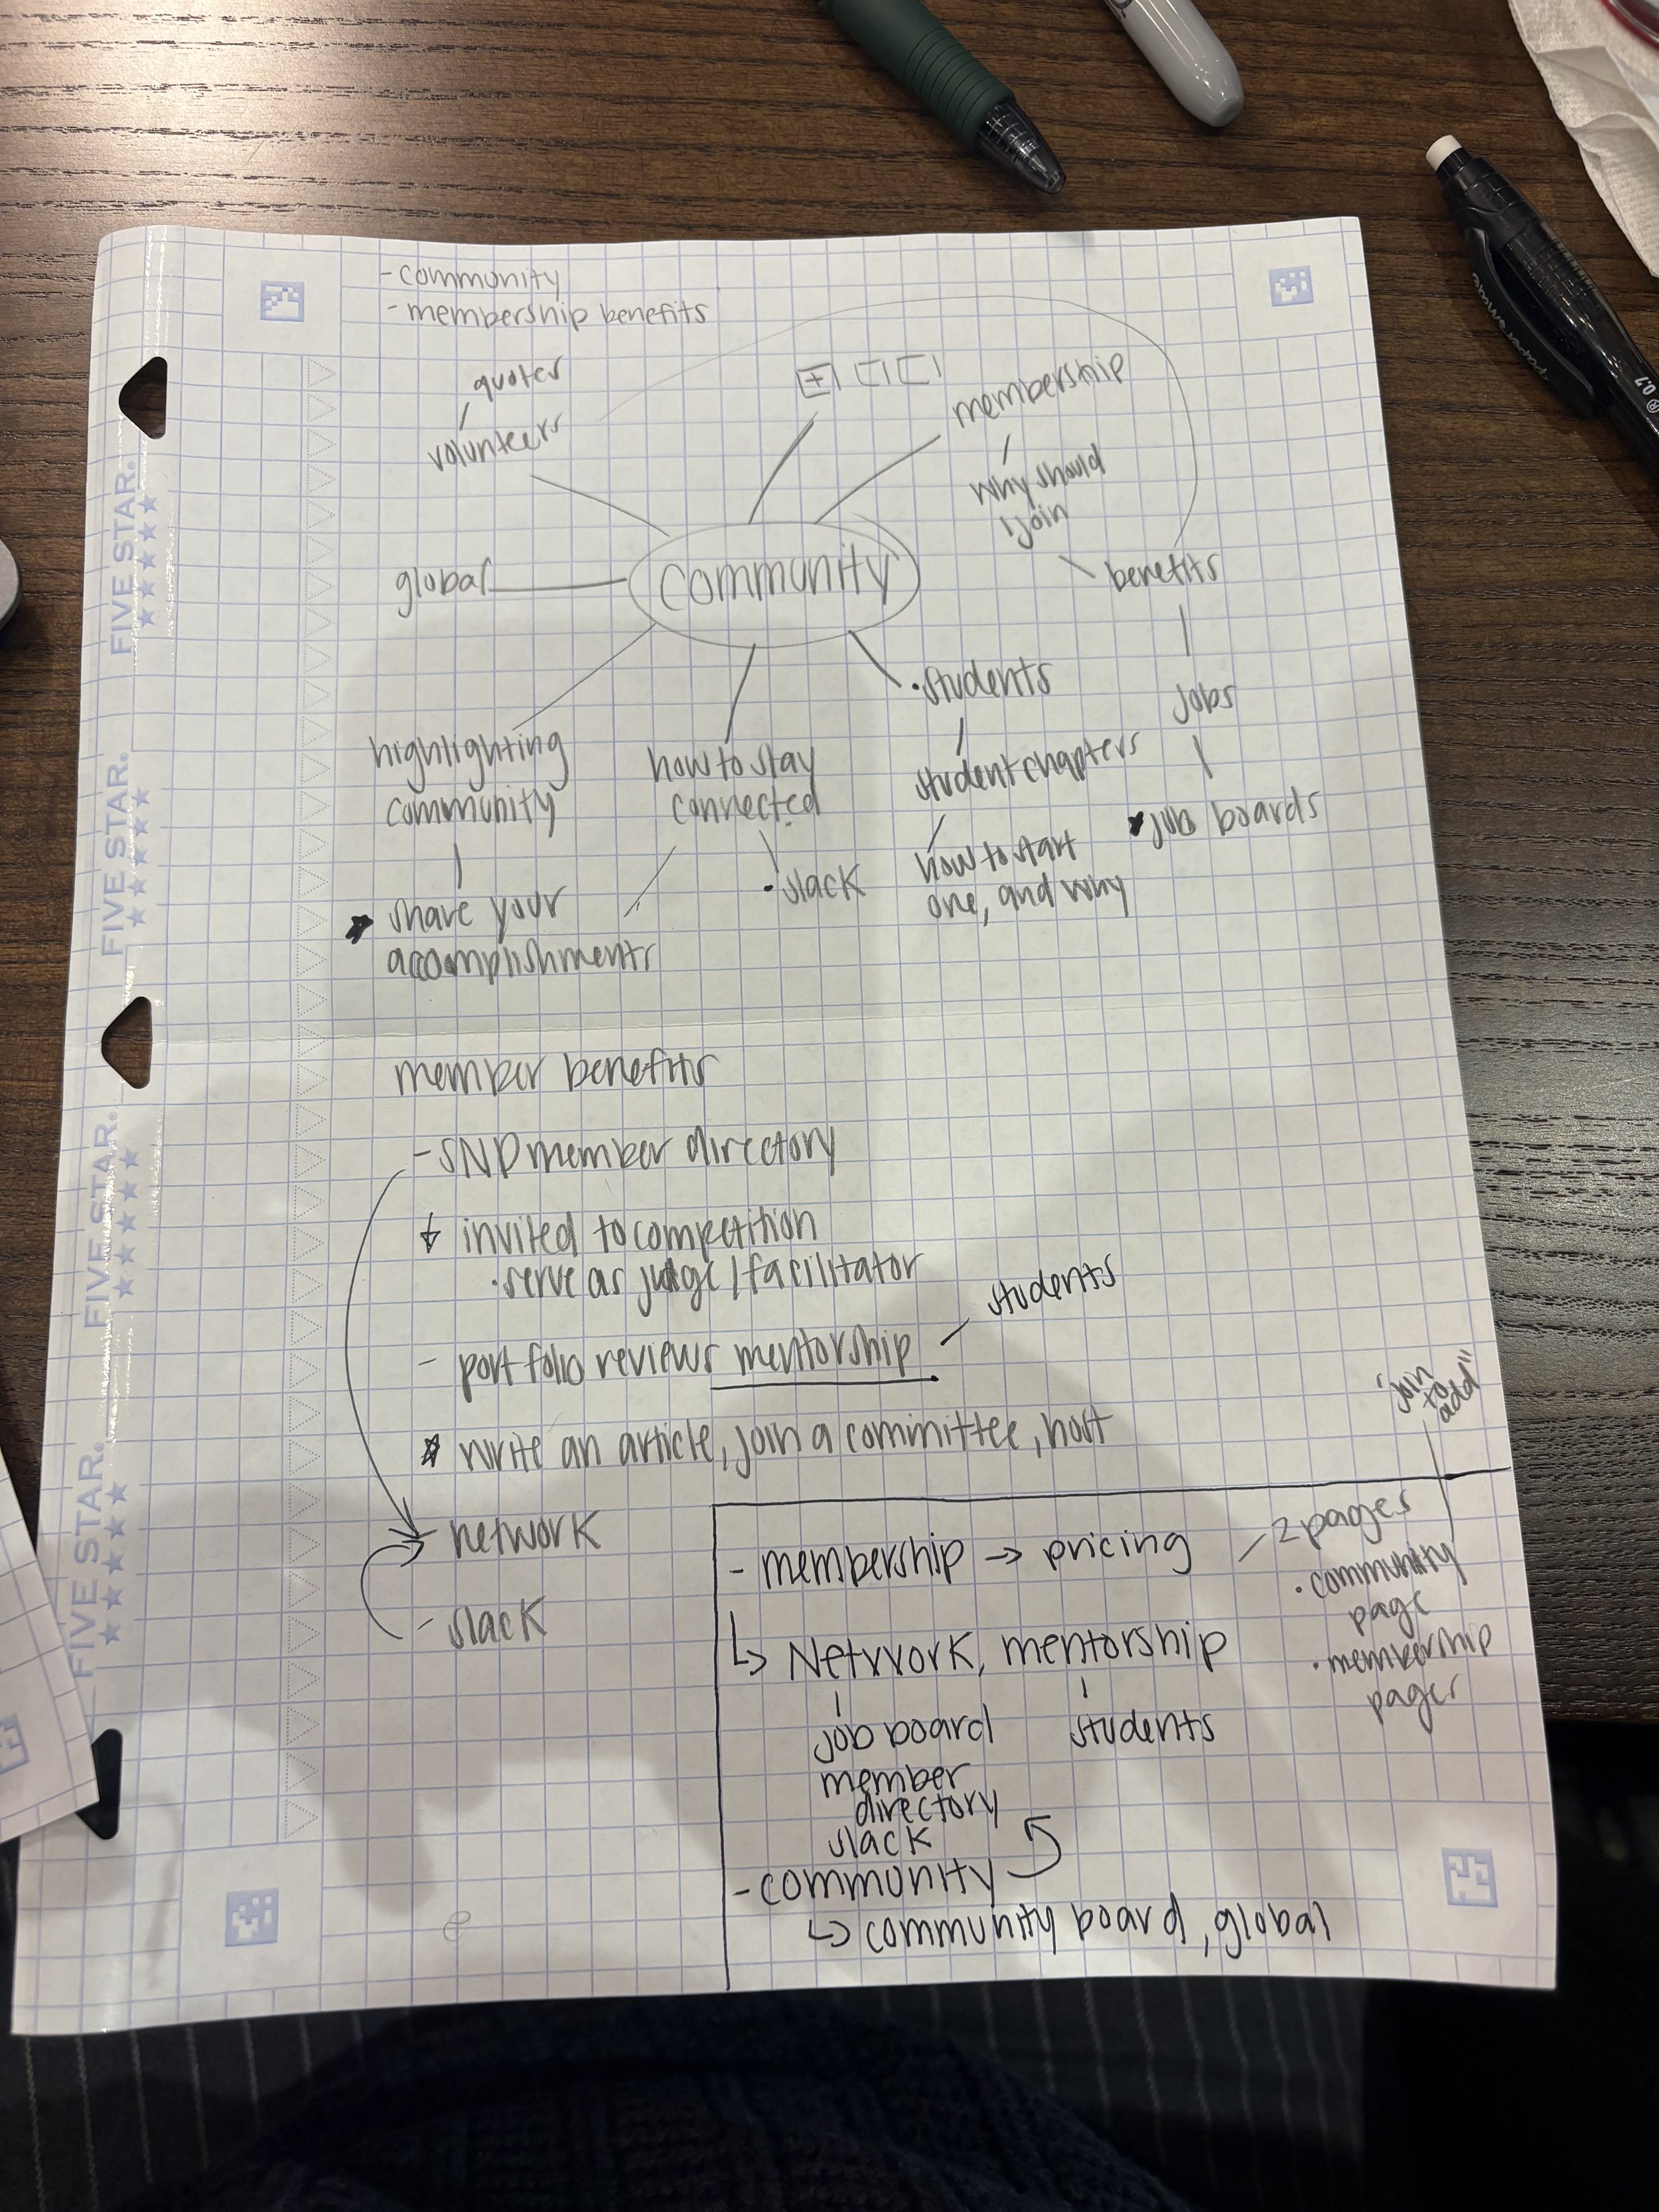 - community
- membership benefits
quotes
volunteers
membership
why should
I join
benefits
jobs
job boards
community
global
highlighting
community
share your
accomplishments
how to stay
connected
• slack
• students
student chapters
how to start
one, and why
member benefits
- SND member directory
invited to competition
• serve as judge / facilitator
- portfolio reviews mentorship
students
write an article, join a committee, host
- network
- slack
"join
to
add"
- membership → pricing
2 pages
• community
page
• membership
pages
↳ Network, mentorship
job board
member
directory
slack
students
- community
↳ community board, global
FIVE STAR.
FIVE STAR.
FIVE STAR.
FIVE STAR.
FIVE STAR.
papermate
® 0.7